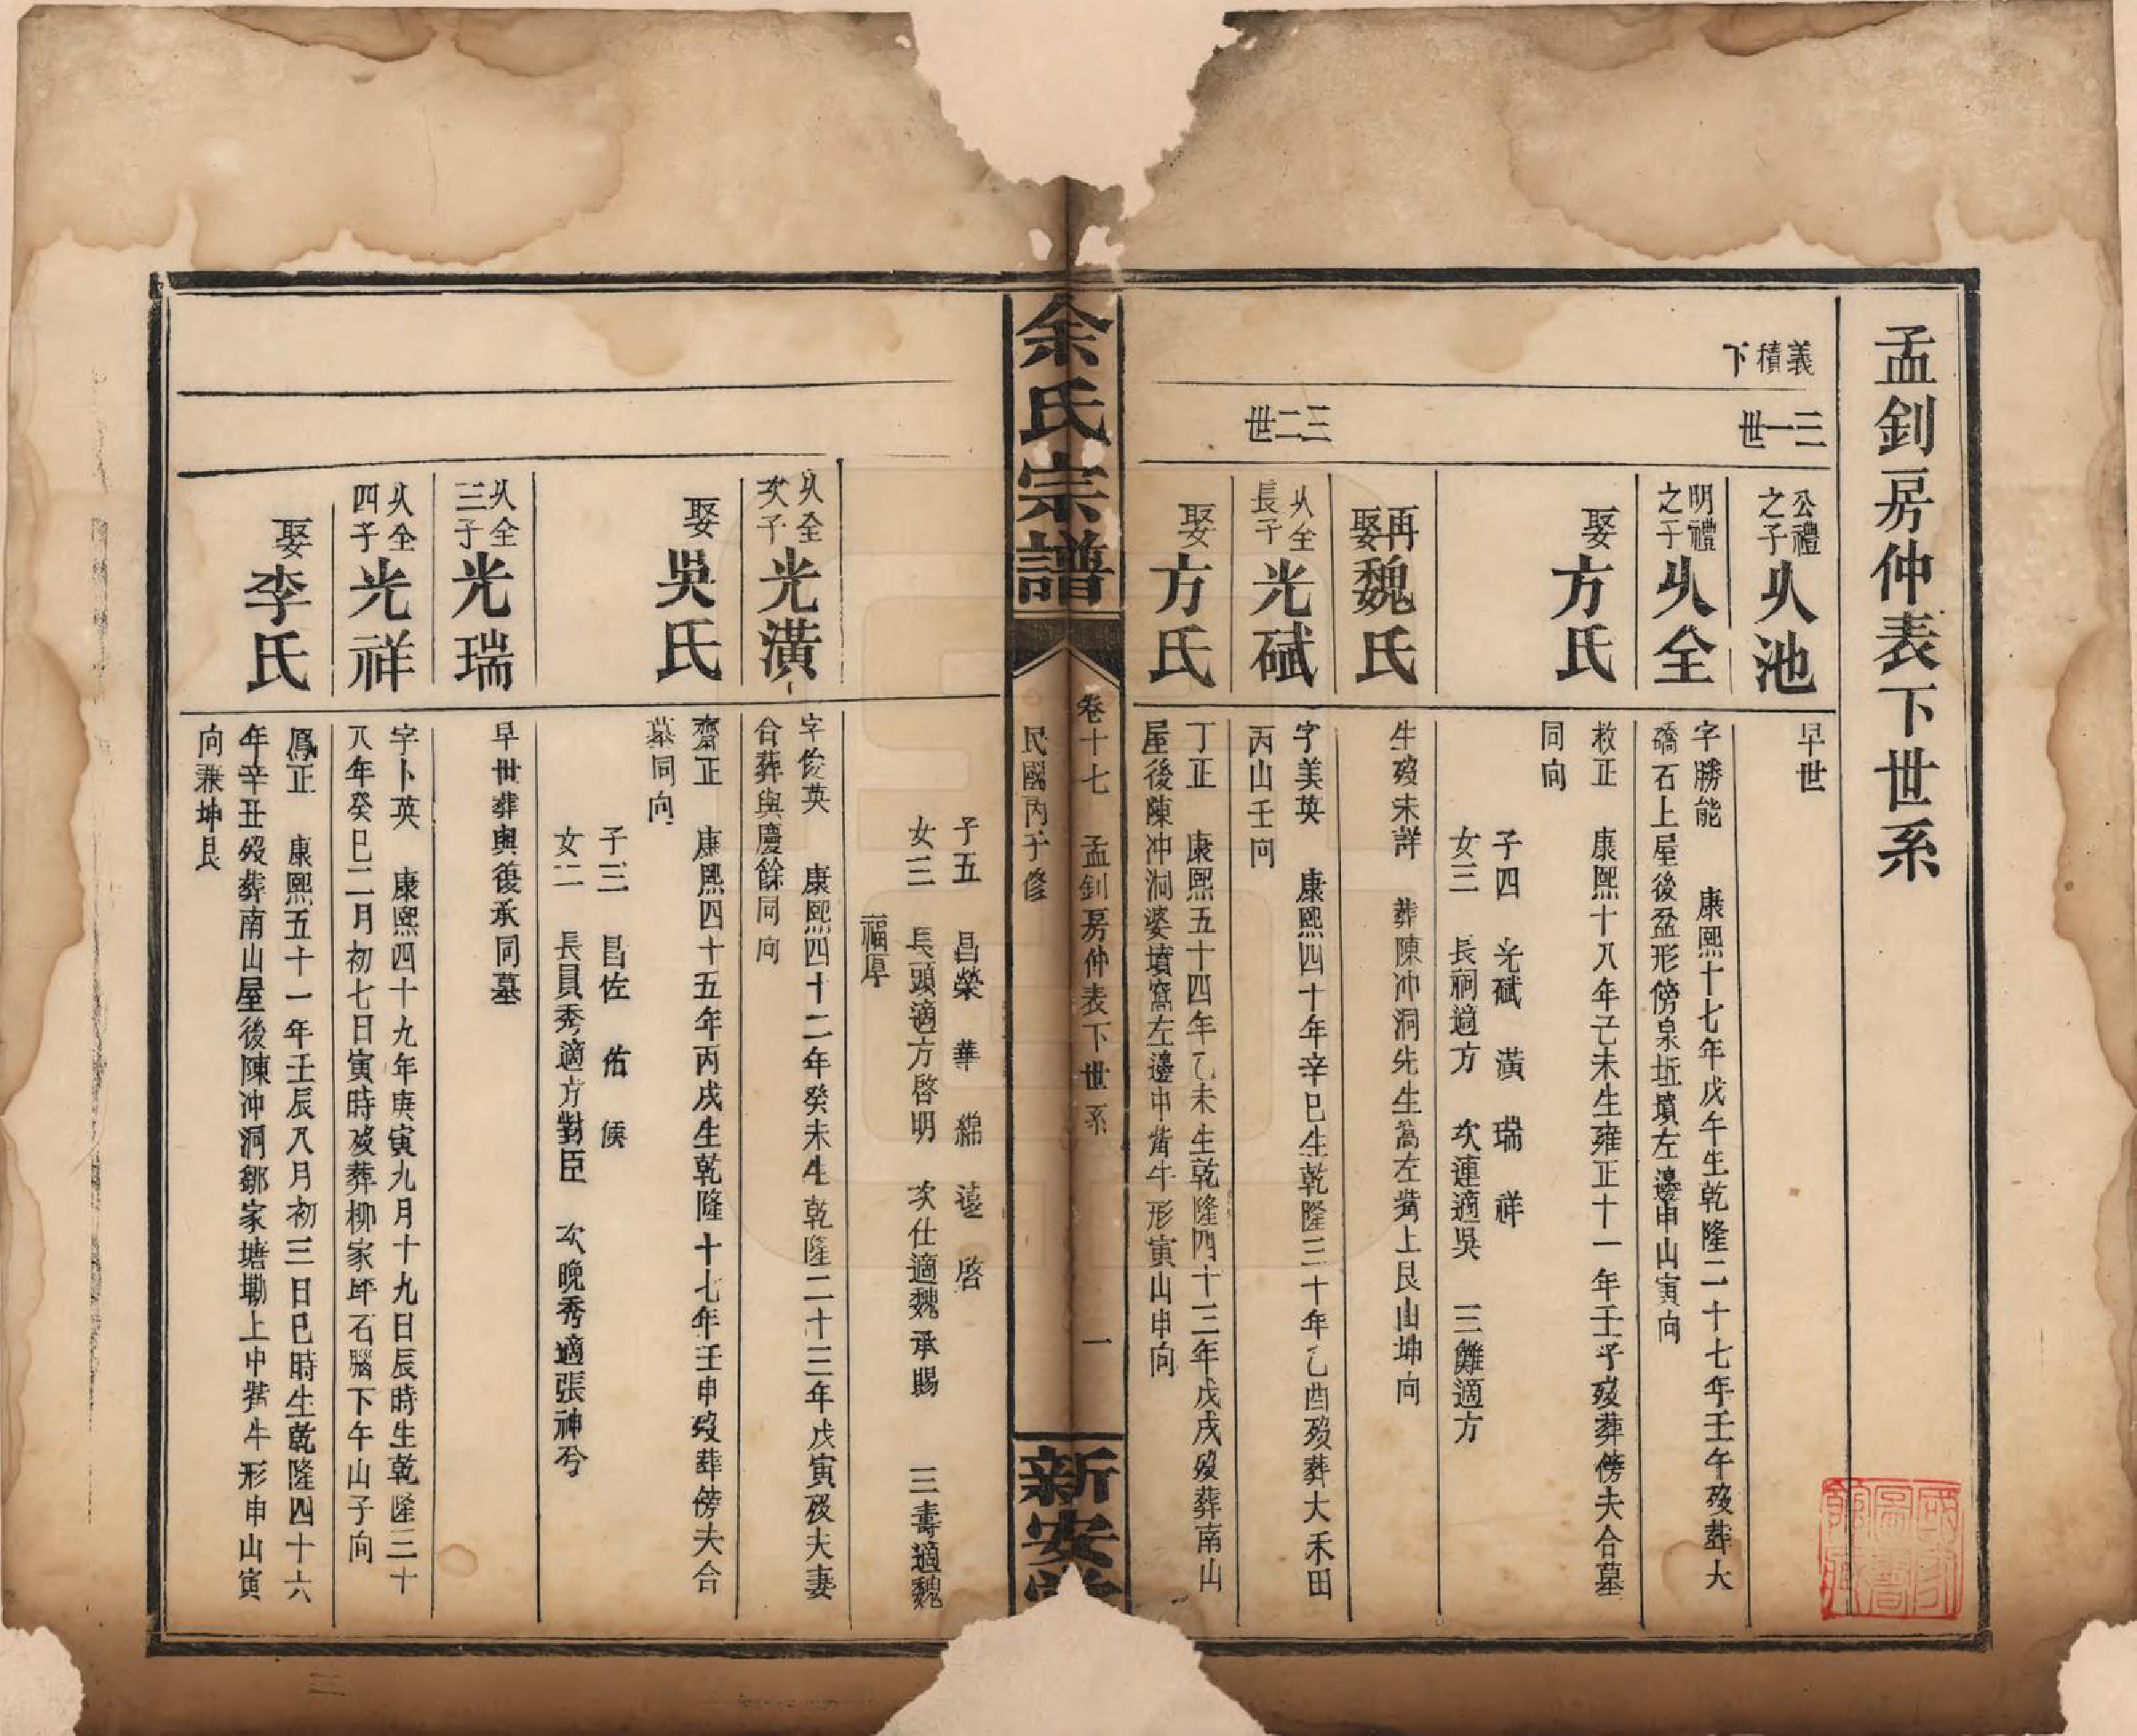 孟釗房仲表下世系
義積下
三一世
公禮之子 从池
早世
明禮之子 从全
字勝能 康熙十七年戊午生乾隆二十七年壬午歿葬大
礄石上屋後盆形傍泉坵墳左邊申山寅向
娶方氏
敕正 康熙十八年己未生雍正十一年壬子歿葬傍夫合墓
同向
子四 光斌 潢 瑞 祥
女三 長祠適方 次連適吳 三難適方
再娶魏氏
生歿未詳 葬陳冲洞先生窩左嘴上艮山坤向
三二世
从全長子 光斌
字美英 康熙四十年辛巳生乾隆三十年乙酉歿葬大禾田
丙山壬向
娶方氏
丁正 康熙五十四年乙未生乾隆四十三年戊戌歿葬南山
屋後陳冲洞婆墳窩左邊中犂牛形寅山申向
余氏宗譜
卷十七 孟釗房仲表下世系 一
民國丙子修
新安堂
子五 昌榮 華 綿 遠 啓
女三 長頭適方啓明 次仕適魏承賜 三壽適魏
福厚
从全次子 光潢
字俊英 康熙四十二年癸未生乾隆二十三年戊寅歿夫妻
合葬與慶餘同向
娶吳氏
齋正 康熙四十五年丙戌生乾隆十七年壬申歿葬傍夫合
墓同向
子三 昌佐 佑 候
女二 長員秀適方對臣 次晚秀適張神兮
从全三子 光瑞
早世葬與復承同墓
从全四子 光祥
字卜英 康熙四十九年庚寅九月十九日辰時生乾隆三十
八年癸巳二月初七日寅時歿葬柳家坪石腦下午山子向
娶李氏
鳳正 康熙五十一年壬辰八月初三日巳時生乾隆四十六
年辛丑歿葬南山屋後陳冲洞鄒家塘墈上中犂牛形申山寅
向兼坤艮